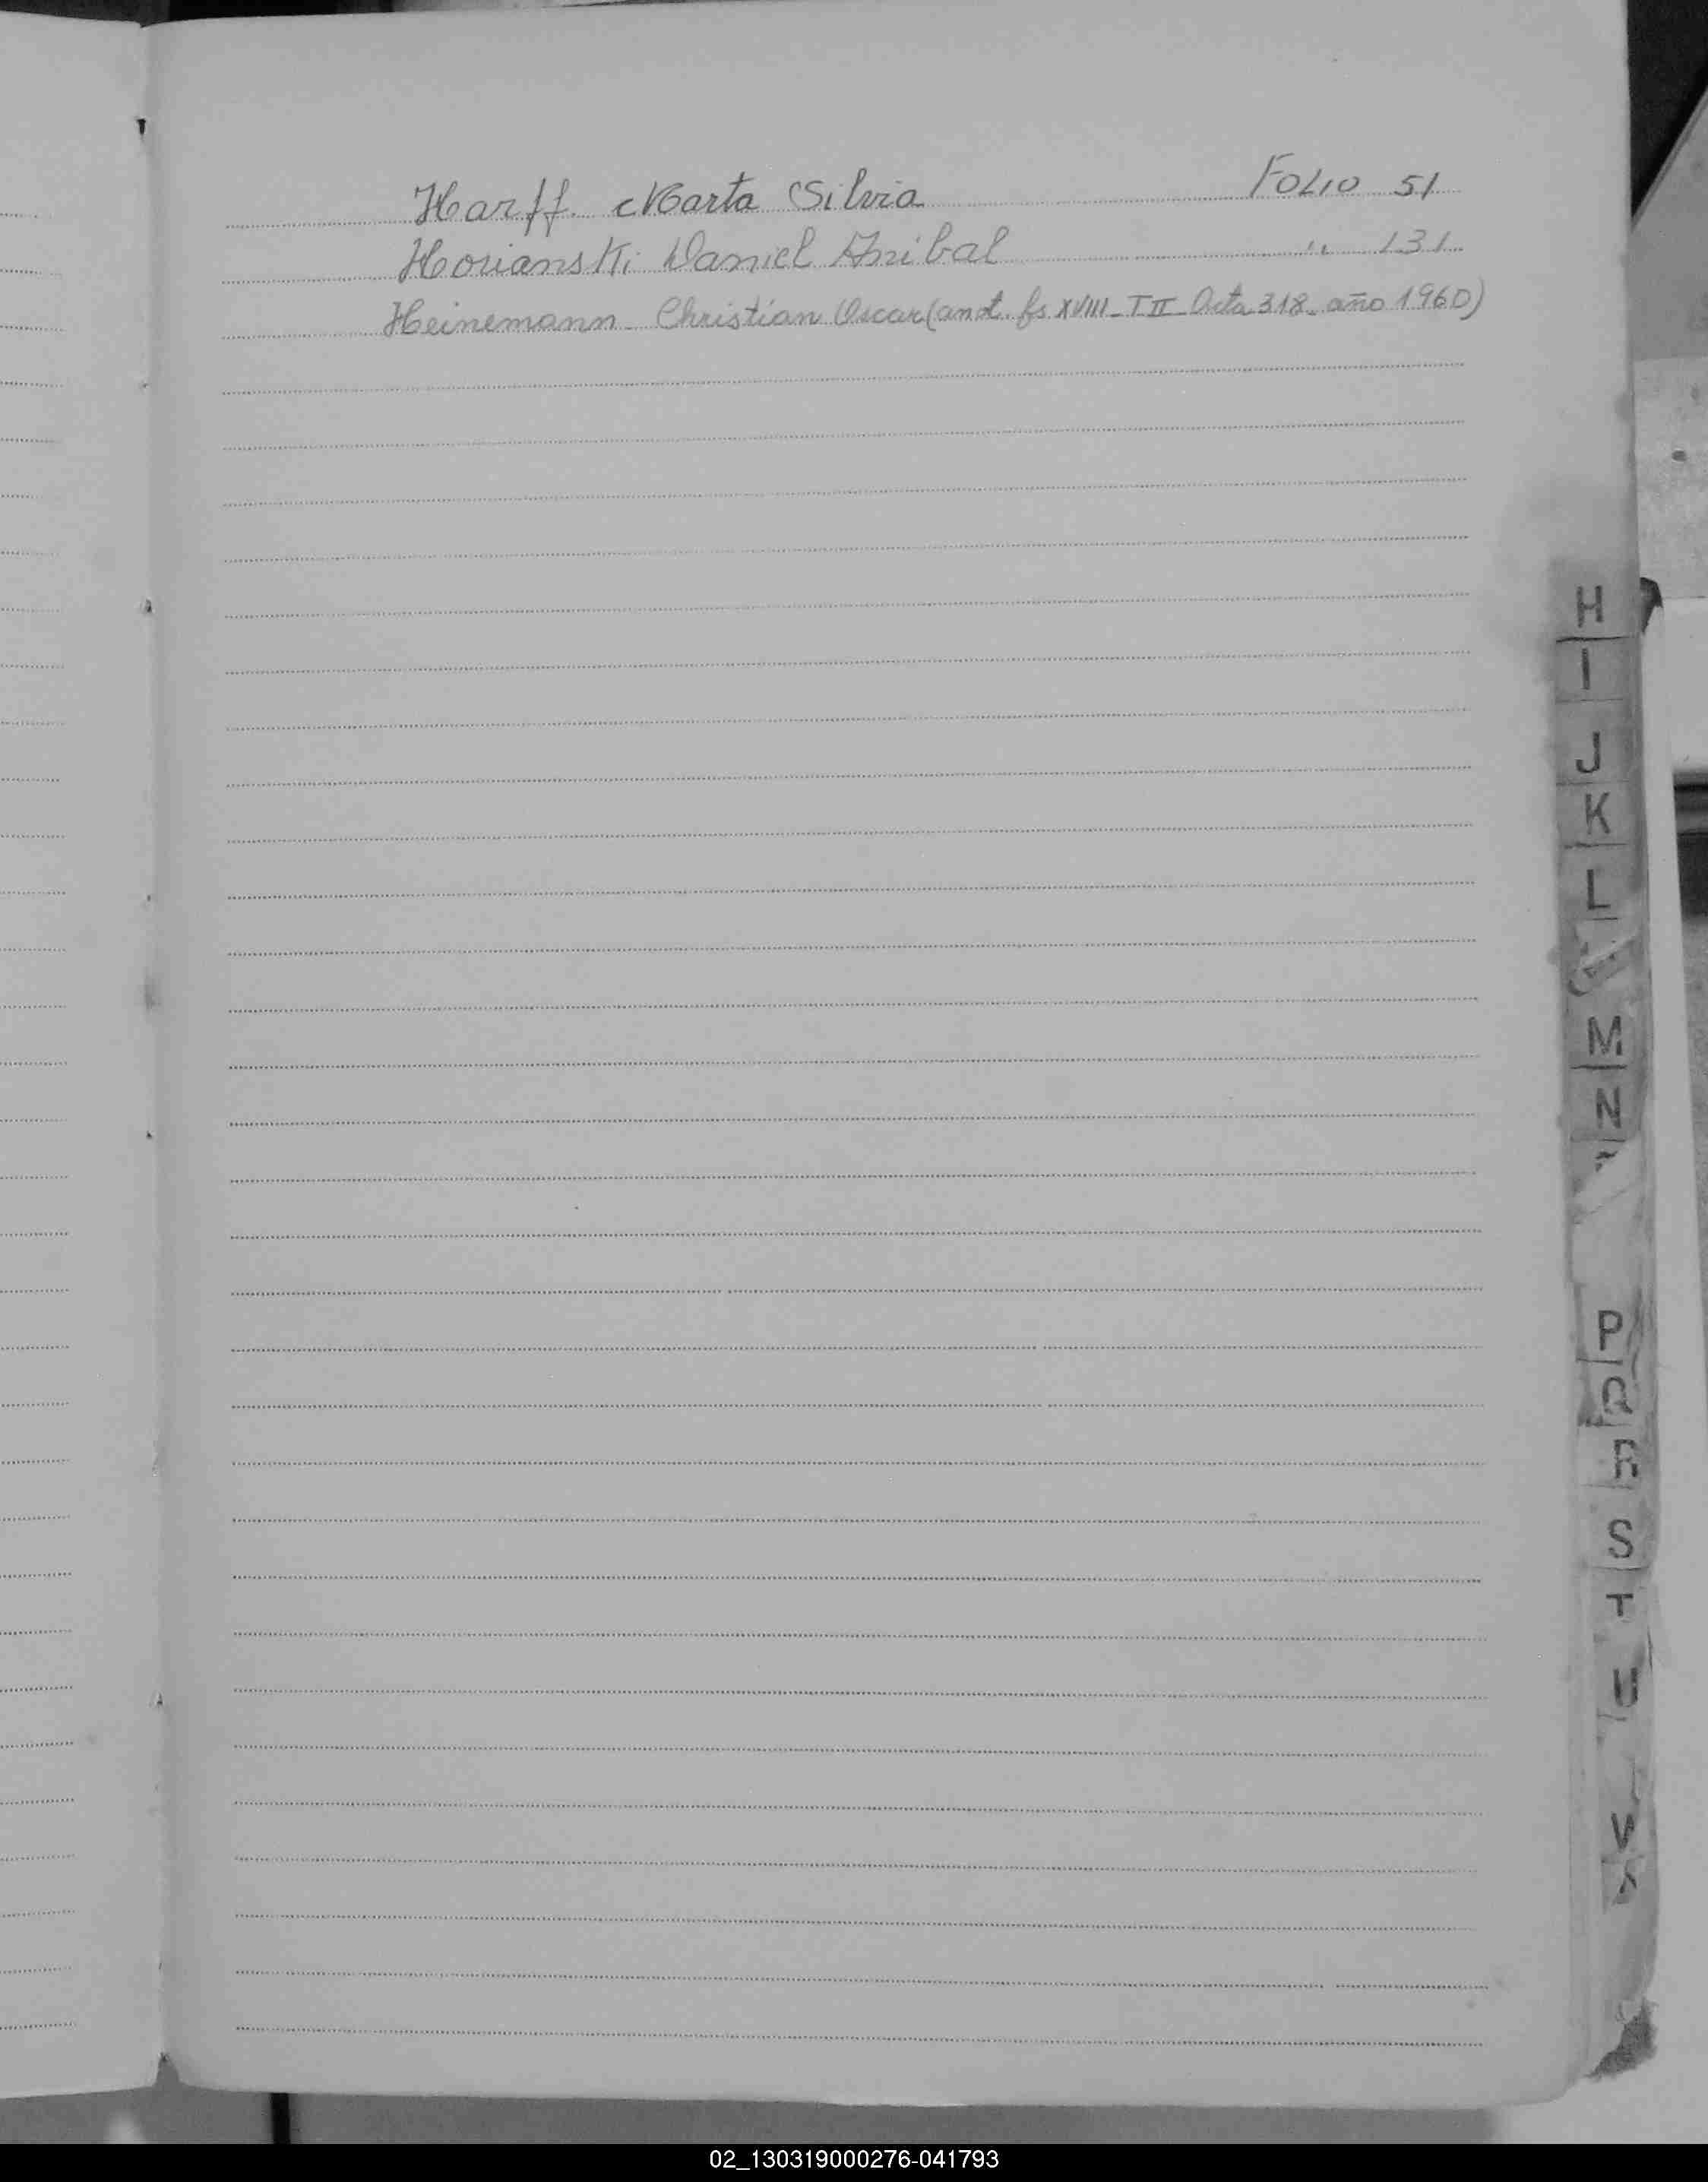 Harff. Marta Silvia FOLIO 51
Horianski Daniel Anibal " 131
Heinemann - Christian Oscar (anot. fs XVIII - T II - Acta 318 - año 1960)
H
I
J
K
L
M
N
P
Q
R
S
T
U
V
02_130319000276-041793